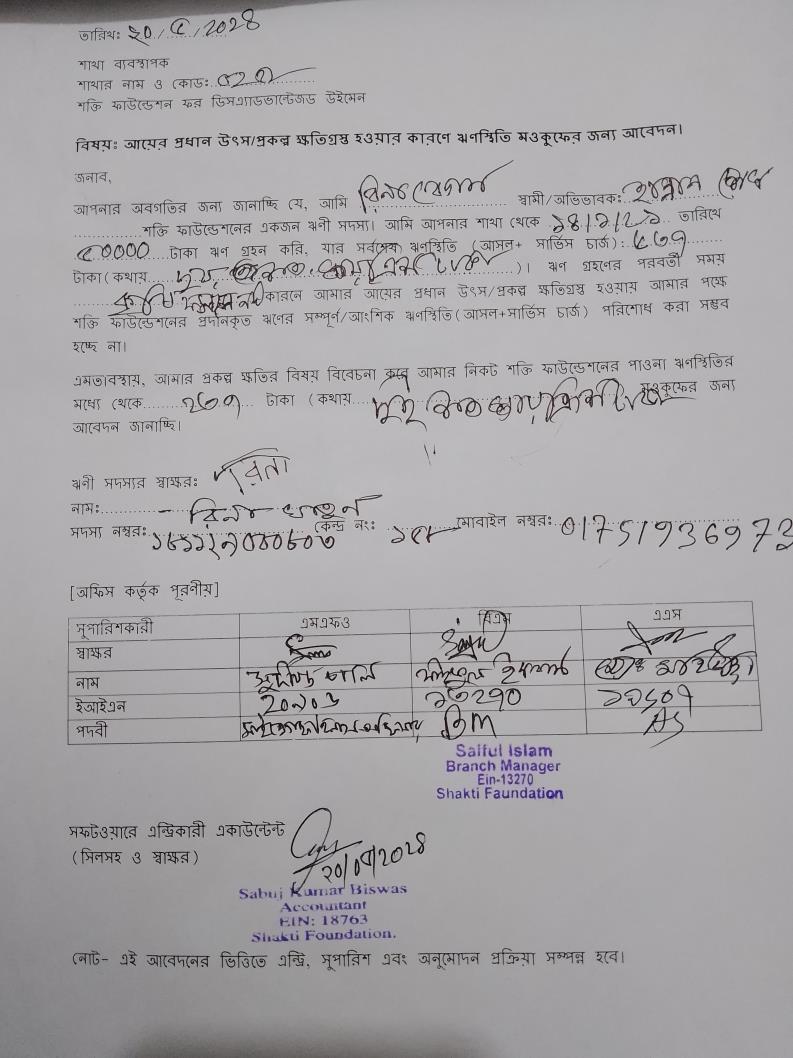 তারিখঃ ২০/৫/২০২৪
শাখা ব্যবস্থাপক
শাখার নাম ও কোডঃ
শক্তি ফাউন্ডেশন ফর ডিসএ্যাডভান্টেজড উইমেন
বিষয়ঃ আয়ের প্রধান উৎস/প্রকল্প ক্ষতিগ্রস্থ হওয়ার কারণে ঋণস্থিতি মওকুফের জন্য আবেদন।
জনাব,
আপনার অবগতির জন্য জানাচ্ছি যে, আমি রিনা স্বামী/অভিভাবকঃ
শক্তি ফাউন্ডেশনের একজন ঋনী সদস্য। আমি আপনার শাখা থেকে তারিখে
৫০০০০ টাকা ঋণ গ্রহন করি, যার সর্বশেষ ঋণস্থিতি (আসল+ সার্ভিস চার্জ):
টাকা(কথায় )। ঋণ গ্রহণের পরবর্তী সময়
কারনে আমার আয়ের প্রধান উৎস/প্রকল্প ক্ষতিগ্রস্থ হওয়ায় আমার পক্ষে
শক্তি ফাউন্ডেশনের প্রদানকৃত ঋণের সম্পূর্ণ/আংশিক ঋণস্থিতি(আসল+সার্ভিস চার্জ) পরিশোধ করা সম্ভব
হচ্ছে না।
এমতাবস্থায়, আমার প্রকল্প ক্ষতির বিষয় বিবেচনা করে আমার নিকট শক্তি ফাউন্ডেশনের পাওনা ঋণস্থিতির
মধ্যে থেকে টাকা (কথায় মওকুফের জন্য
আবেদন জানাচ্ছি।
ঋনী সদস্যর স্বাক্ষরঃ
নাম: - রিনা খাতুন
সদস্য নম্বরঃ কেন্দ্র নং: মোবাইল নম্বরঃ 01751936973
[অফিস কর্তৃক পূরনীয়]
সুপারিশকারী এমএফও বিএম এএস
স্বাক্ষর
নাম
ইআইএন ১৩২৭০
পদবী BM AS
Saiful Islam
Branch Manager
Ein-13270
Shakti Faundation
সফটওয়ারে এন্ট্রিকারী একাউন্টেন্ট
(সিলসহ ও স্বাক্ষর)
২০/০৫/২০২৪
Sabuj Kumar Biswas
Accountant
EIN: 18763
Shakti Foundation.
নোট- এই আবেদনের ভিত্তিতে এন্ট্রি, সুপারিশ এবং অনুমোদন প্রক্রিয়া সম্পন্ন হবে।